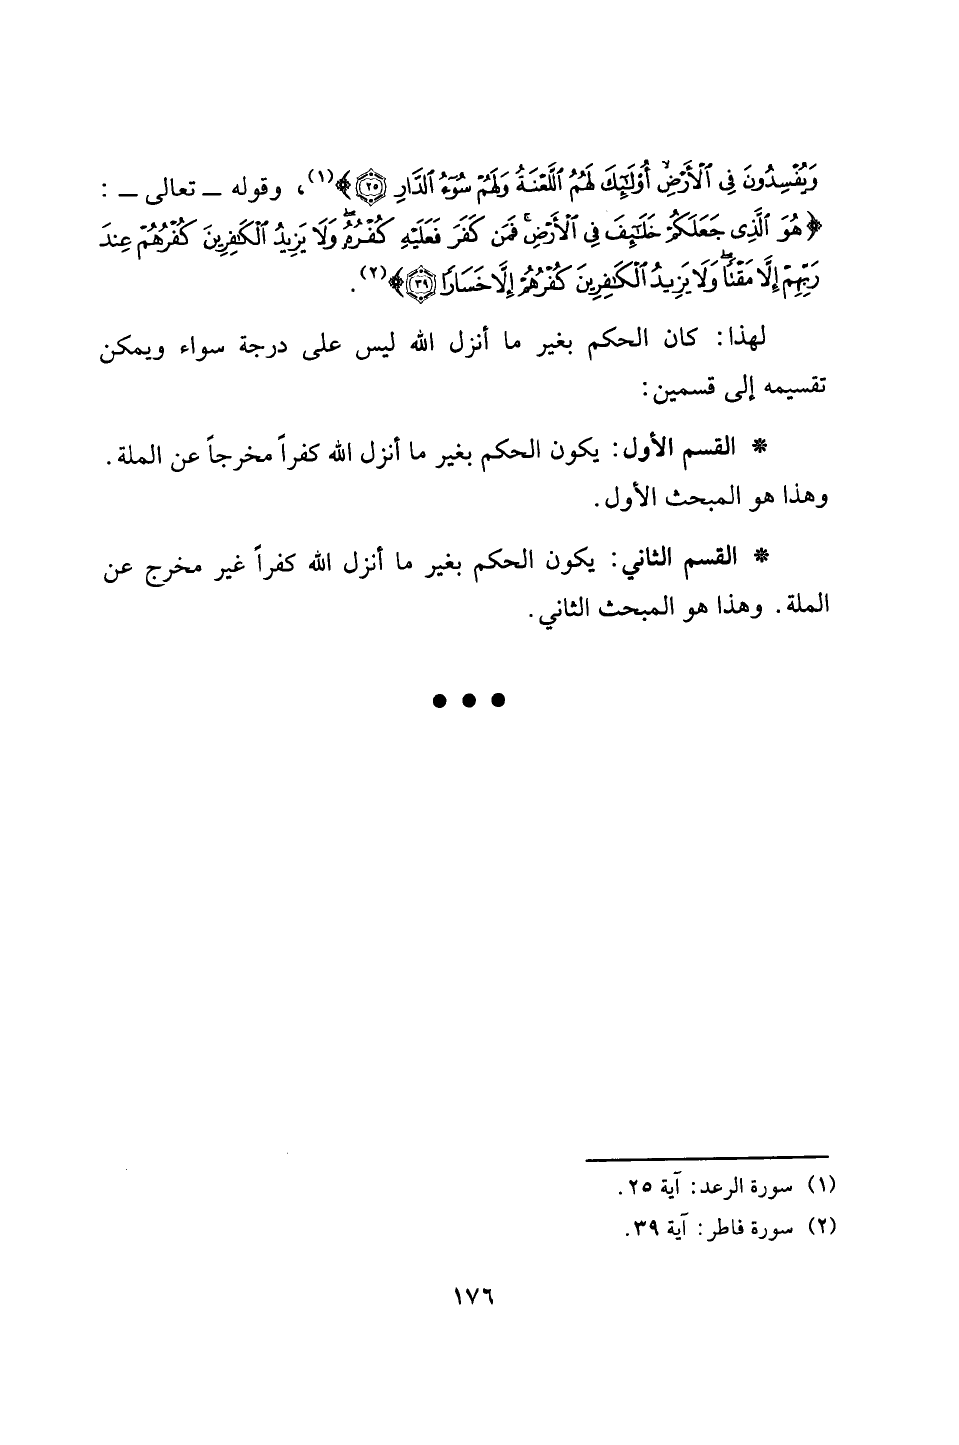 وَيُفْسِدُونَ فِى ٱلْأَرْضِ ۙ أُو۟لَـٰٓئِكَ لَهُمُ ٱللَّعْنَةُ وَلَهُمْ سُوٓءُ ٱلدَّارِ ۝٢٥﴾(١)، وقوله ــ تعالى ــ :
﴿هُوَ ٱلَّذِى جَعَلَكُمْ خَلَـٰٓئِفَ فِى ٱلْأَرْضِ ۚ فَمَن كَفَرَ فَعَلَيْهِ كُفْرُهُۥ ۖ وَلَا يَزِيدُ ٱلْكَـٰفِرِينَ كُفْرُهُمْ عِندَ
رَبِّهِمْ إِلَّا مَقْتًا ۖ وَلَا يَزِيدُ ٱلْكَـٰفِرِينَ كُفْرُهُمْ إِلَّا خَسَارًا ۝٣٩﴾(٢).
لهذا: كان الحكم بغير ما أنزل الله ليس على درجة سواء ويمكن
تقسيمه إلى قسمين:
* القسم الأول: يكون الحكم بغير ما أنزل الله كفراً مخرجاً عن الملة.
وهذا هو المبحث الأول.
* القسم الثاني: يكون الحكم بغير ما أنزل الله كفراً غير مخرج عن
الملة. وهذا هو المبحث الثاني.
● ● ●
(١) سورة الرعد: آية ٢٥.
(٢) سورة فاطر: آية ٣٩.
١٧٦